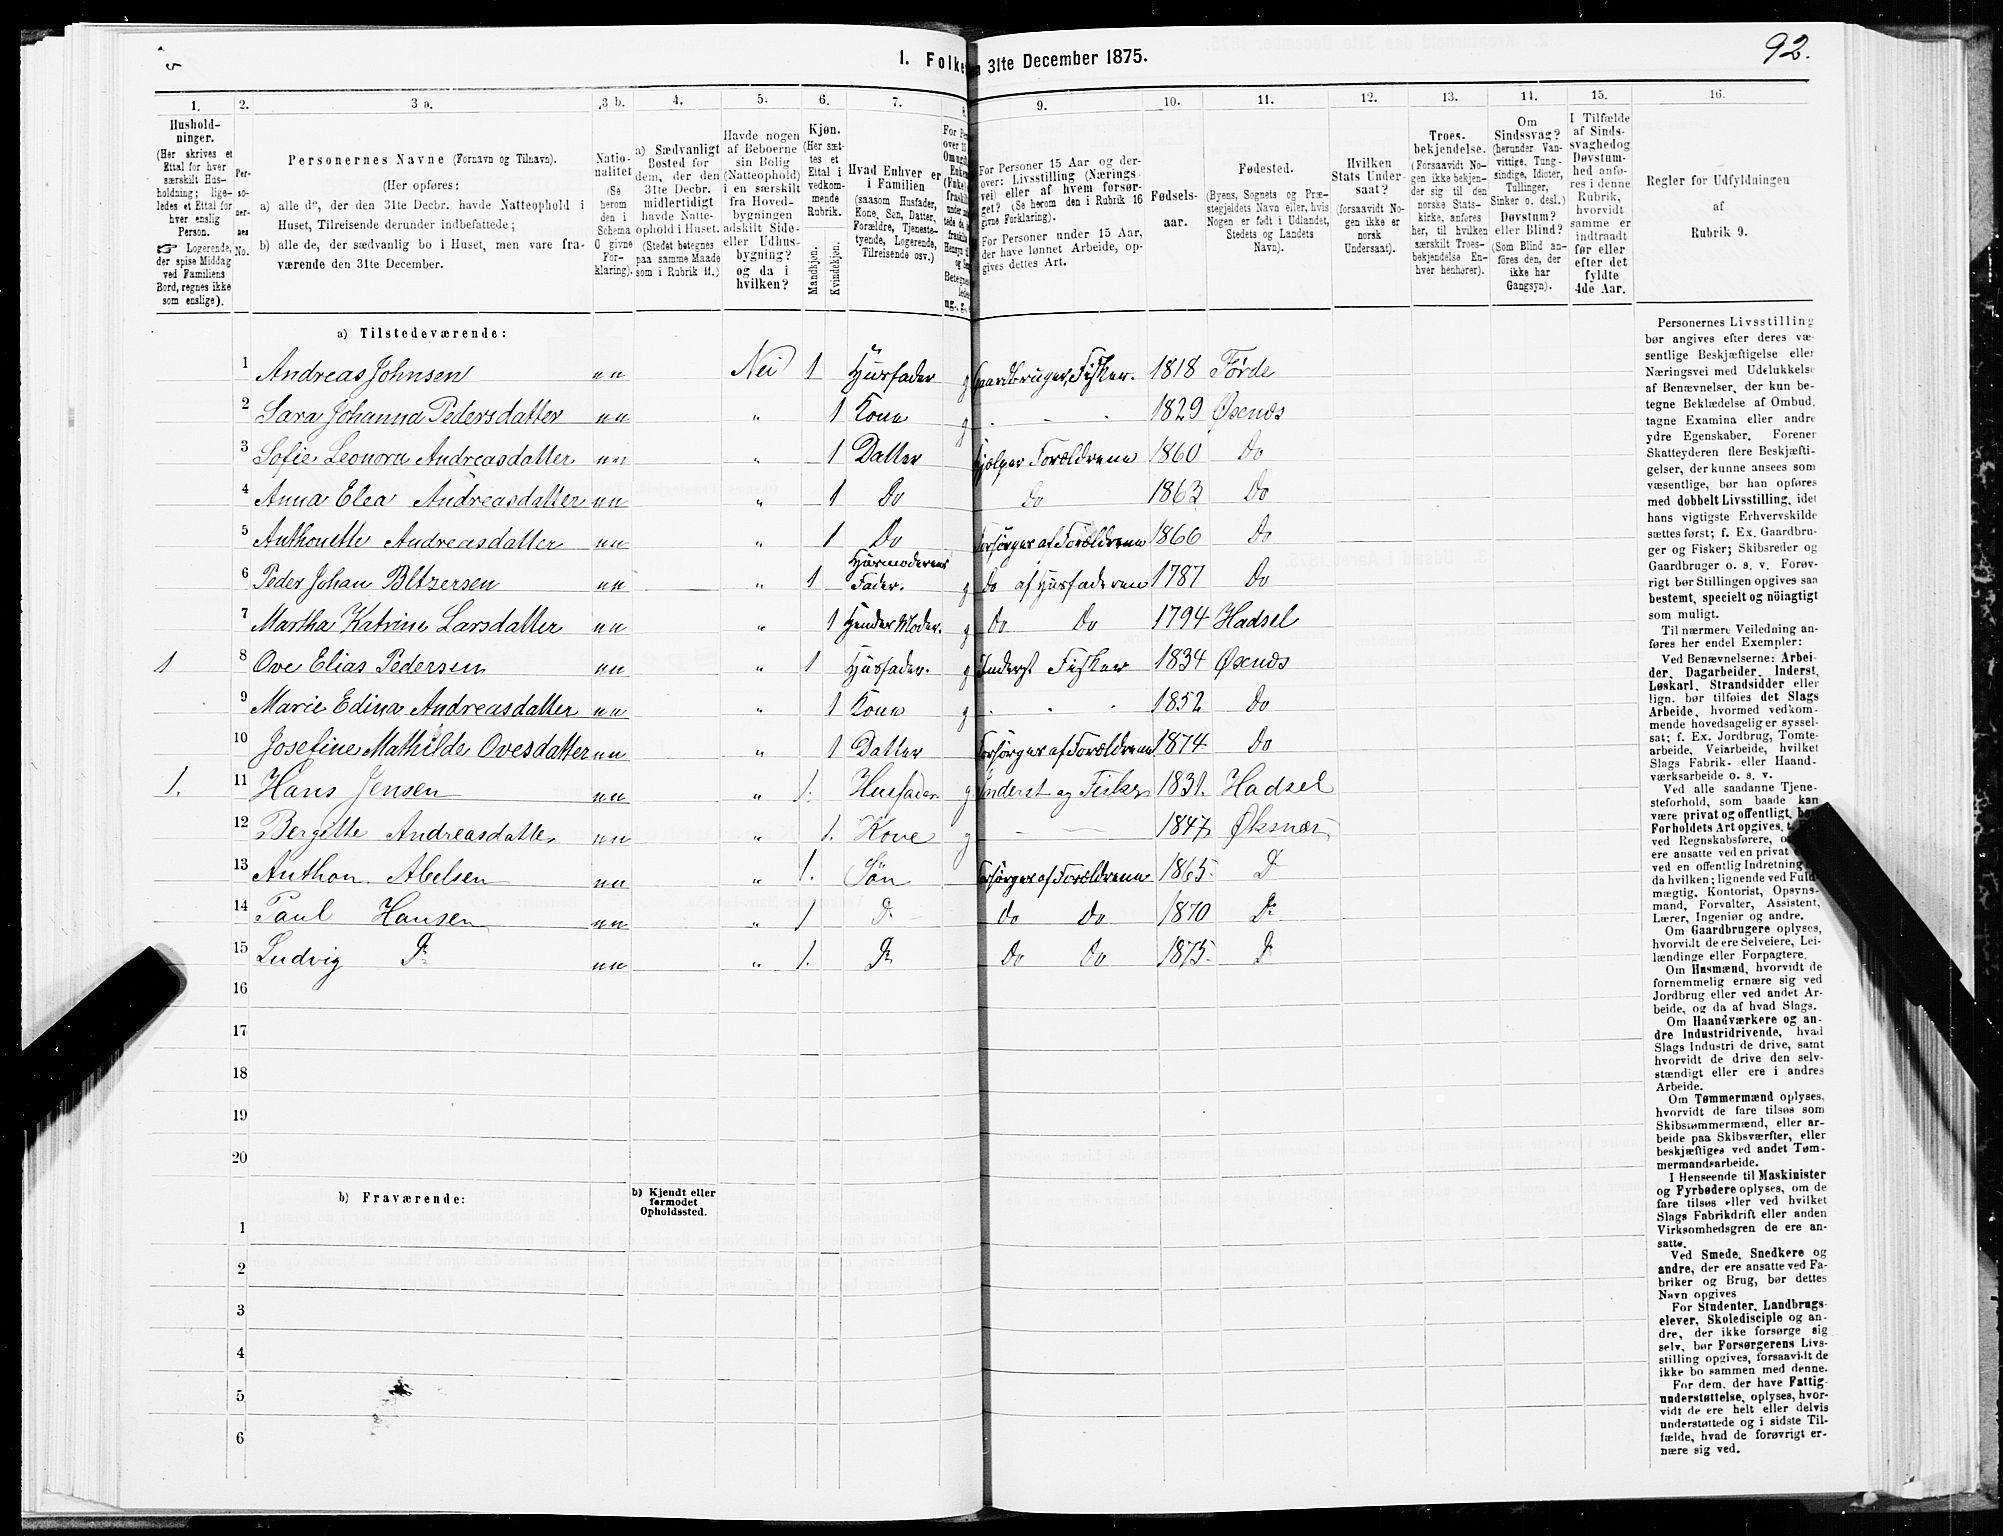 92.
I. Folke
n 31te December 1875.
1. 2. 3 a. 3 b. 4. 5. 6. 7. 8. 9. 10. 11. 12. 13. 14. 15. 16.
Hushold-
ninger.
(Her skrives et
Ettal for hver
særskilt Hus-
holdning; lige-
ledes et Ettal for
hver enslig
Person.
Logerende,
der spise Middag
ved Familiens
Bord, regnes ikke
som enslige).
Per-
so-
ner-
nes
No.
Personernes Navne (Fornavn og Tilnavn).
(Her opføres:
a) alle de, der den 31te Decbr. havde Natteophold i
Huset, Tilreisende derunder indbefattede;
b) alle de, der sædvanlig bo i Huset, men vare fra-
værende den 31te December.
Natio-
nalitet
(Se
herom
den i
Schema
O givne
For-
klaring).
a) Sædvanligt
Bosted for
dem, der den
31te Decbr.
midlertidigt
havde Natte-
ophold i Huset.
(Stedet betegnes
paa samme Maade
som i Rubrik 11.)
Havde nogen
af Beboerne
sin Bolig
(Natteophold)
i en særskilt
fra Hoved-
bygningen
adskilt Side-
eller Udhus-
bygning?
og da i
hvilken?
Kjøn.
(Her sæt-
tes et
Ettal i
vedkom-
mende
Rubrik.
Mandkjøn.
Kvindekjøn.
Hvad Enhver er
i Familien
(saasom Husfader,
Kone, Søn, Datter,
Forældre, Tjeneste-
tyende, Logerende,
Tilreisende osv.)
For Personer 15 Aar og der-
over: Livsstilling (Nærings-
vei) eller af hvem forsør-
get? (Se herom den i Rubrik 16
givne Forklaring).
For Personer under 15 Aar,
der have lønnet Arbeide, op-
gives dettes Art.
Fødsels-
aar.
Fødested.
(Byens, Sognets og Præ-
stegjeldets Navn eller, hvis
Nogen er født i Udlandet,
Stedets og Landets
Navn).
Hvilken
Stats Under-
saat?
(forsaavidt No-
gen ikke er
norsk
Undersaat).
Troes-
bekjendelse.
(Forsaavidt No-
gen ikke bekjen-
der sig til den
norske Stats-
kirke, anføres
her, til hvilken
særskilt Troes-
bekjendelse En-
hver henhører).
Om
Sindssvag?
(herunder Van-
vittige, Tung-
sindige, Idioter,
Tullinger,
Sinker o. desl.)
Døvstum?
eller Blind?
(Som Blind an-
føres den, der
ikke har
Gangsyn).
I Tilfælde
af Sinds-
svaghed og
Døvstum-
hed anfø-
res i denne
Rubrik,
hvorvidt
samme er
indtraadt
før eller
efter det
fyldte
4de Aar.
Regler for Udfyldningen
af
Rubrik 9.
a) Tilstedeværende:
1 Andreas Johnsen nn Nei 1 Husfader g Gaardbruger, Fisker. 1818 Førde
2 Sara Johanna Pedersdatter nn „ 1 Kone g 1829 Øxenæs
3 Sofie Leonora Andreasdatter nn „ 1 Datter Hjælper Forældrene 1860 Do
4 Anna Elea Andreasdatter nn „ 1 Do Do 1863 Do
5 Anthonette Andreasdatter nn „ 1 Do Forsørges af Forældrene 1866 Do
6 Peder Johan Bltzersen nn „ 1 Husmoderens Fader. g Do af Husfaderen 1787 Do
7 Martha Katrine Larsdatter nn „ 1 Hendes Moder. g Do Do 1794 Hadsel
1 8 Ove Elias Pedersen nn „ 1 Husfader. g Inderst Fisker 1834 Øxenæs
9 Marie Edina Andreasdatter nn „ 1 Kone g 1852 Do
10 Josefine Mathilde Ovesdatter nn „ 1 Datter Forsørges af Forældrene 1874 Do
1. 11 Hans Jensen nn „ 1. Husfader g Inderst og Fisker 1831. Hadsel
12 Bergitte Andreasdatter nn „ 1. Kone g — — 1847 Øksnæs
13 Anthon Abelsen nn „ 1. Søn Forsørges af Forældrene 1865 Do
14 Paul Hansen nn „ 1 Do Do Do 1870 Do
15 Ludvig Do nn „ 1. Do Do Do 1875 Do
16
17
18
19
20
b) Fraværende:
b) Kjendt eller
formodet
Opholdssted.
1
2
3
4
5
6
Personernes Livsstilling
bør angives efter deres væ-
sentlige Beskjæftigelse eller
Næringsvei med Udelukkelse
af Benævnelser, der kun be-
tegne Beklædelse af Ombud,
tagne Examina eller andre
ydre Egenskaber. Forener
Skatteyderen flere Beskjæfti-
gelser, der kunne ansees som
væsentlige, bør han opføres
med dobbelt Livsstilling, idet
hans vigtigste Erhvervskilde
sættes først; f. Ex. Gaardbru-
ger og Fisker; Skibsreder og
Gaardbruger o. s. v. Forøv-
rigt bør Stillingen opgives saa
bestemt, specielt og nöiagtigt
som muligt.
Til nærmere Veiledning an-
føres her endel Exempler:
Ved Benævnelserne: Arbei-
der, Dagarbeider, Inderst,
Løskarl, Strandsidder eller
lign. bør tilføies det Slags
Arbeide, hvormed vedkom-
mende hovedsagelig er syssel-
sat; f. Ex. Jordbrug, Tomte-
arbeide, Veiarbeide, hvilket
Slags Fabrik- eller Haand-
værksarbeide o. s. v.
Ved alle saadanne Tjene-
steforhold, som baade kan
være privat og offentligt, bør
Forholdets Art opgives,
ved Regnskabsførere,
ere ansatte ved en privat
ved en offentlig Indretning
da hvilken; lignende ved Fuld-
mægtig, Kontorist, Opsyns-
mand, Forvalter, Assistent,
Lærer, Ingeniør og andre.
Om Gaardbrugere oplyses,
hvorvidt de ere Selveiere, Lei-
lændinge eller Forpagtere.
Om Husmænd, hvorvidt de
fornemmelig ernære sig ved
Jordbrug eller ved andet Ar-
beide, og da af hvad Slags.
Om Haandværkere og an-
dre Industridrivende, hvad
Slags Industri de drive, samt
hvorvidt de drive den selv-
stændigt eller ere i andres
Arbeide.
Om Tømmermænd oplyses,
hvorvidt de fare tilsøs som
Skibstømmermænd, eller ar-
beide paa Skibsværfter, eller
beskjæftiges ved andet Tøm-
mermandsarbeide.
I Henseende til Maskinister
og Fyrbødere oplyses, om de
fare tilsøs eller ved hvilket
Slags Fabrikdrift eller anden
Virksomhedsgren de ere an-
satte.
Ved Smede, Snedkere og
andre, der ere ansatte ved Fa-
briker og Brug, bør dettes
Navn opgives
For Studenter, Landbrugs-
elever, Skoledisciple og an-
dre, der ikke forsørge sig
selv, bør Forsørgerens Livs-
stilling opgives, forsaavidt de
ikke bo sammen med denne.
For dem, der have Fattig-
understøttelse, oplyses, hvor-
vidt de ere helt eller delvis
understøttede og i sidste Til-
fælde, hvad de forøvrigt er-
nære sig ved.